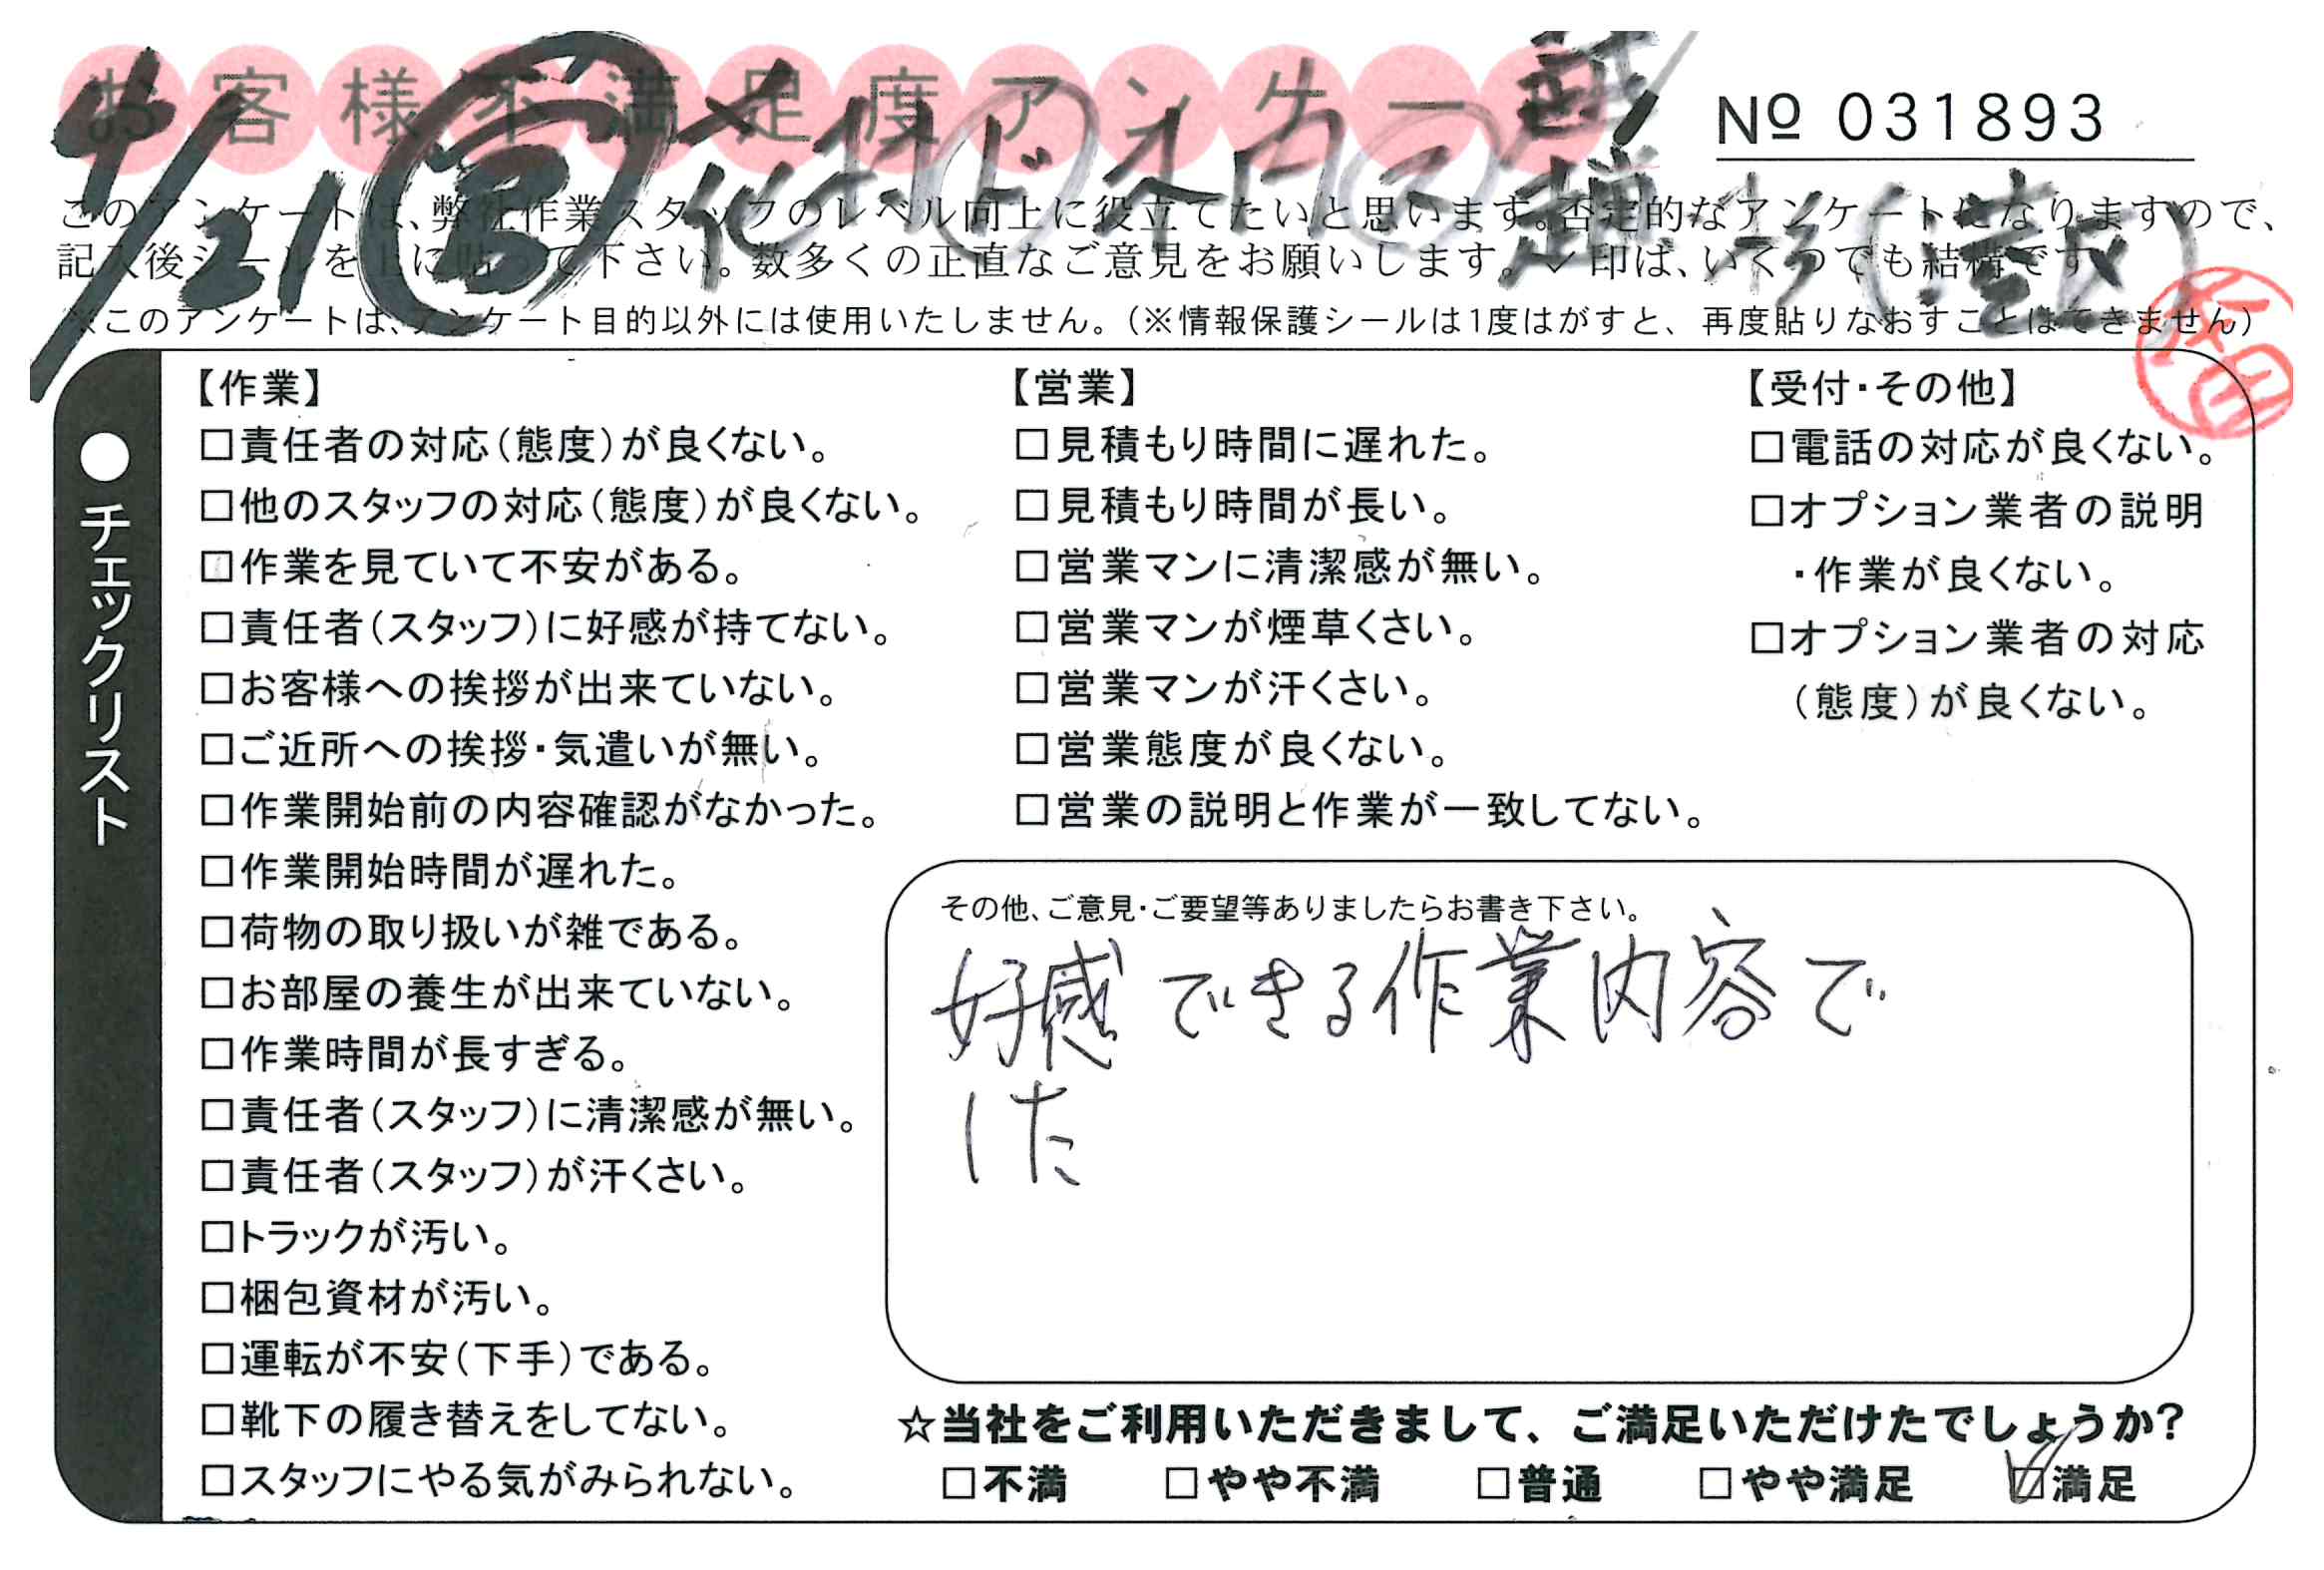 お客様不満足度アンケート
№ 031893
4/21
このアンケートは、弊社作業スタッフのレベル向上に役立てたいと思います。否定的なアンケートになりますので、
記入後シールを上に貼って下さい。数多くの正直なご意見をお願いします。✓印は、いくつでも結構です。
※このアンケートは、アンケート目的以外には使用いたしません。(※情報保護シールは1度はがすと、再度貼りなおすことはできません)
●チェックリスト
【作業】
□責任者の対応(態度)が良くない。
□他のスタッフの対応(態度)が良くない。
□作業を見ていて不安がある。
□責任者(スタッフ)に好感が持てない。
□お客様への挨拶が出来ていない。
□ご近所への挨拶・気遣いが無い。
□作業開始前の内容確認がなかった。
□作業開始時間が遅れた。
□荷物の取り扱いが雑である。
□お部屋の養生が出来ていない。
□作業時間が長すぎる。
□責任者(スタッフ)に清潔感が無い。
□責任者(スタッフ)が汗くさい。
□トラックが汚い。
□梱包資材が汚い。
□運転が不安(下手)である。
□靴下の履き替えをしてない。
□スタッフにやる気がみられない。
【営業】
□見積もり時間に遅れた。
□見積もり時間が長い。
□営業マンに清潔感が無い。
□営業マンが煙草くさい。
□営業マンが汗くさい。
□営業態度が良くない。
□営業の説明と作業が一致してない。
【受付・その他】
□電話の対応が良くない。
□オプション業者の説明
・作業が良くない。
□オプション業者の対応
(態度)が良くない。
その他、ご意見・ご要望等ありましたらお書き下さい。
好感できる作業内容で
した
☆当社をご利用いただきまして、ご満足いただけたでしょうか?
□不満 □やや不満 □普通 □やや満足 ☑満足